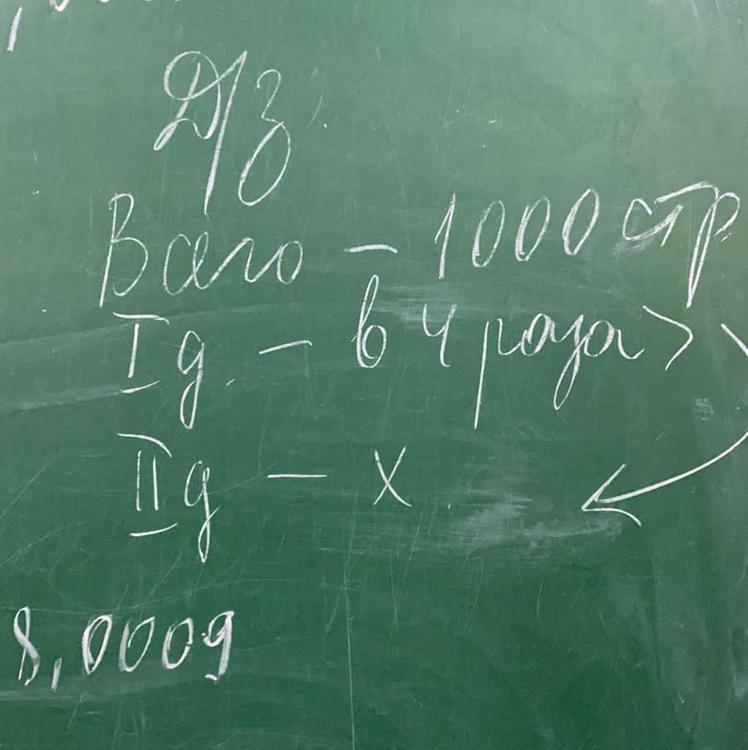 Д/З
Всего – 1000 стр
I д. – в 4 раза >
II д – x
8,0009